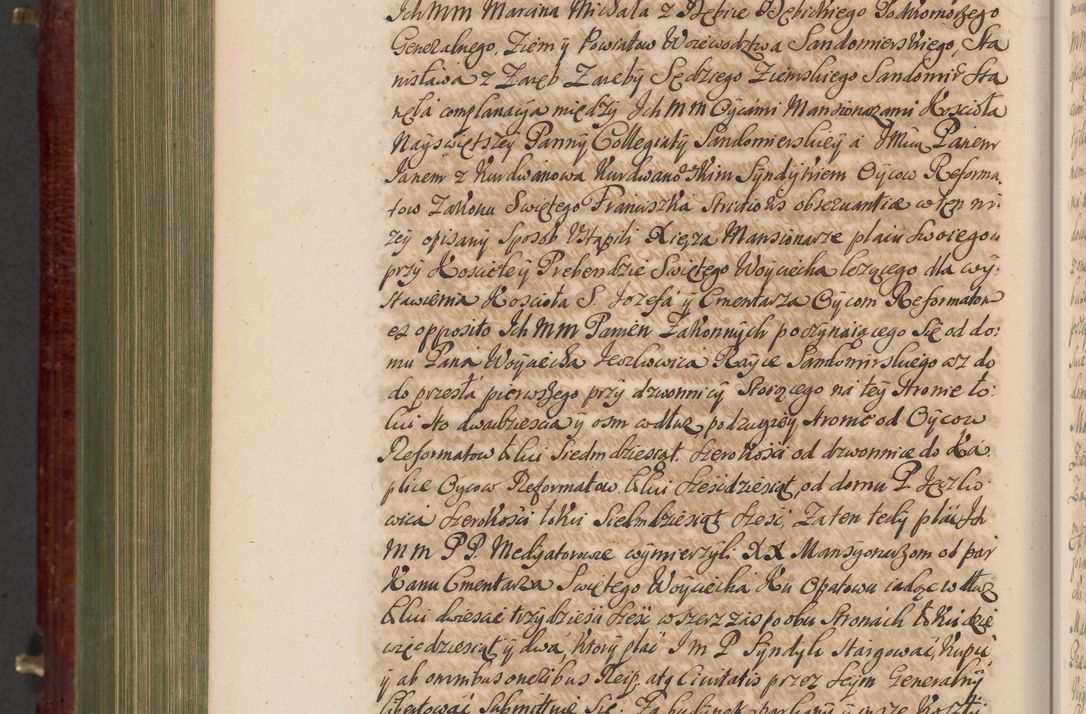 Ich mm Marcina Michała z Dębice Dębickiego Podkomorzego
Generalnego, Ziem y Powiatow Woiewodztwa Sandomierskiego, Sta
nisława z Zaręb Zaręby Sędziego Ziemskiego Sandomir. Sta
nęła complanacya między Ich mm Oycami Mansionarzami Kościoła
Nayświętszey Panny Collegiaty Sandomierskiey a Imm Panem
Janem z Kurdwanowa Kurdwanowskim Syndykiem Oycow Reforma
tow Zakonu Swiętego Franciszka Strictioris observantiæ w ten ni
zey opisany sposob Ustąpili Xięza Mansionarze placu swoiego
przy Kosciele y Prebendzie Swiętego Woyciecha lezącego dla wy
stawienia Koscioła S. Jozefa y Cmentarza Oycom Reformatom
ex opposito Ich mm Panien Zakonnych poczynaiącego się od do
mu Pana Woyciecha Jeszkowica Rayce Sandomirskiego az do
do przesła pierwszego przy dzwonnicy stoiącego na tey stronie ło
kci sto dwadziescia y osm wdłuz, po drugiey stronie od Oycow
Reformatow łokci siedmdziesiąt. szerokości od dzwonnice do Ka
plice Oycow Reformatow łokci sześcdziesiąt, od domu P. Jeszko
wica szerokosci łokci siedmdziesiąt sześć, Za ten tedy plac Ich
mm PP. Medyatorowie wymierzyli XX Mansyonarzom od par
kanu Cmentarza Swiętego Woyciecha ku Opatowu iadąc wdłuz
łokci dwiescie trzydziesci sześć wszerz zas po obu stronach łokci dzie
więcdziesiąt y dwa, ktory plac Im P Syndyk stargować, kupić
y ab omnibus oneribus Reip. atq Civitatis przez Seym Generalny
libertować submittuie się. Za budynek